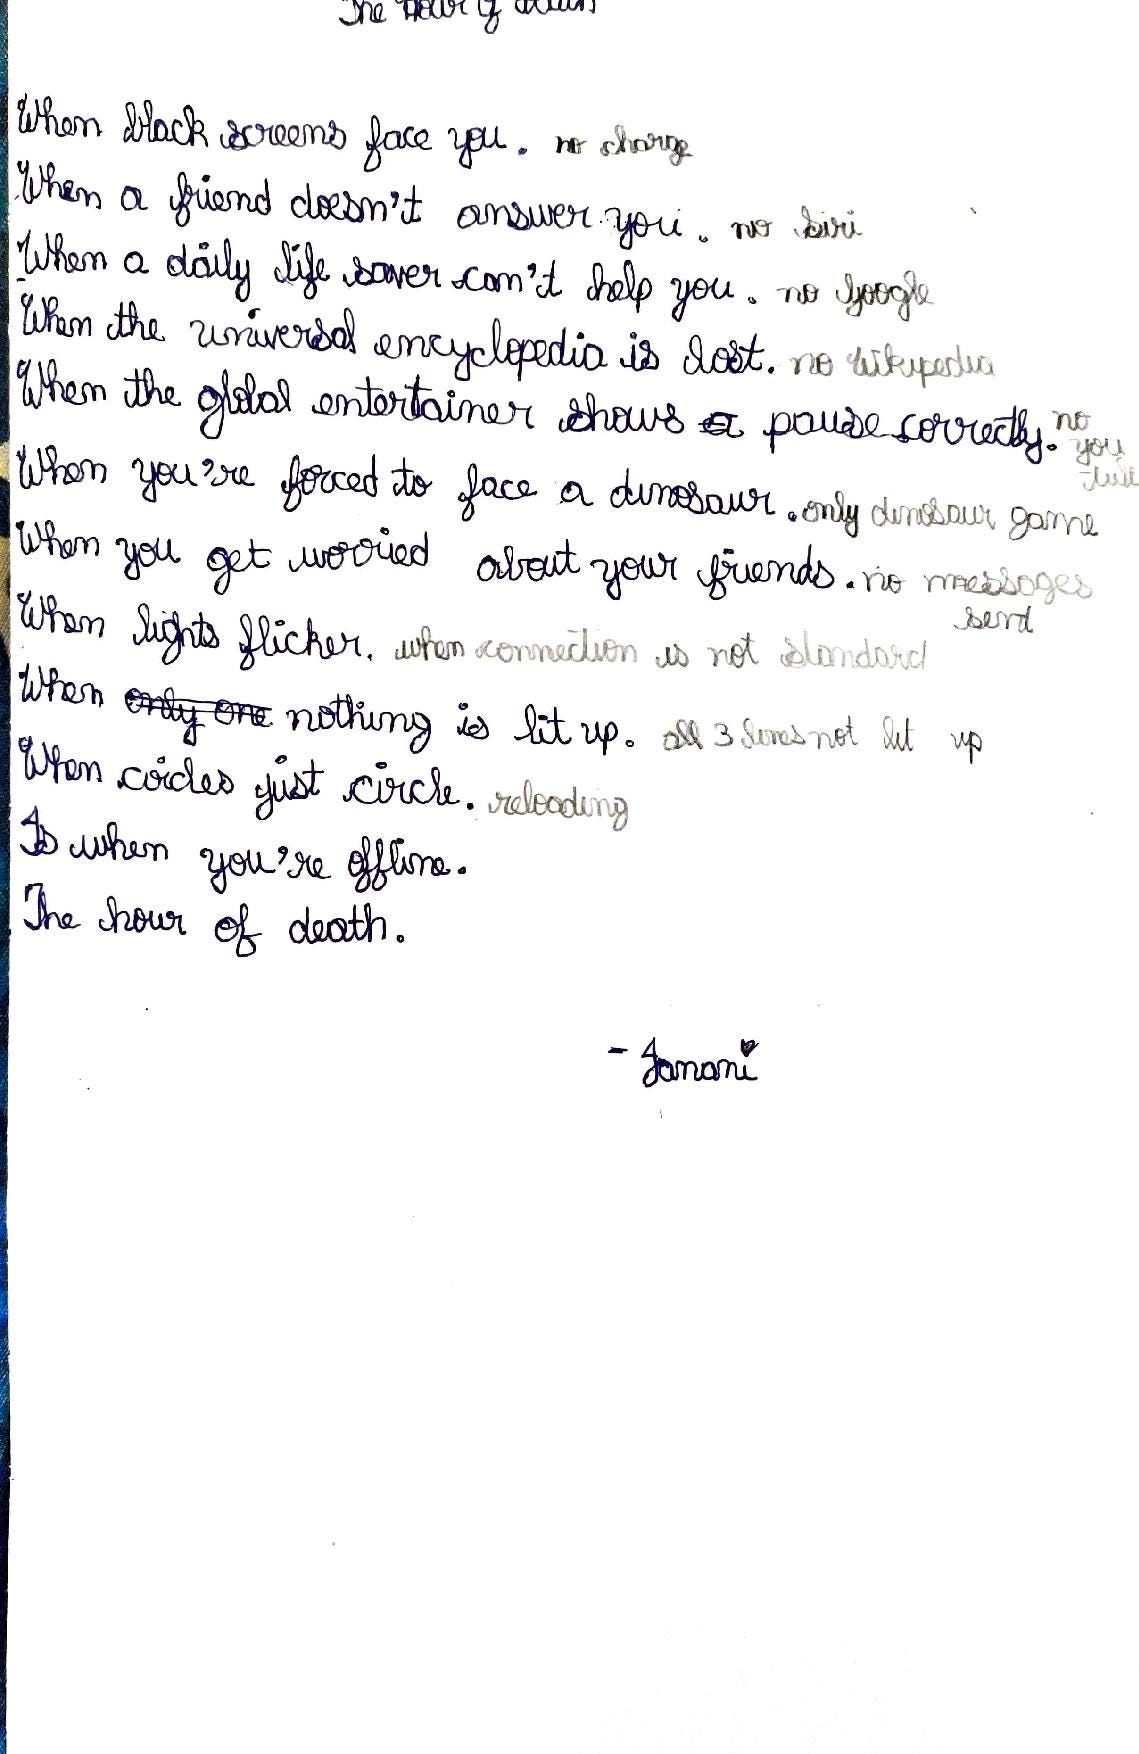 The Hour of death
When black screens face you. no charge
When a friend doesn't answer you. no Siri
When a daily life saver can't help you. no Google
When the universal encyclopedia is lost. no Wikipedia
When the global entertainer shows a pause correctly. no
you
tube
When you're forced to face a dinosaur. only dinosaur game
When you get worried about your friends. no messages
send
When lights flicker. when connection is not standard
When only one nothing is lit up. all 3 lines not lit up
When circles just circle. reloading
Is when you're offline.
The hour of death.
- Janani